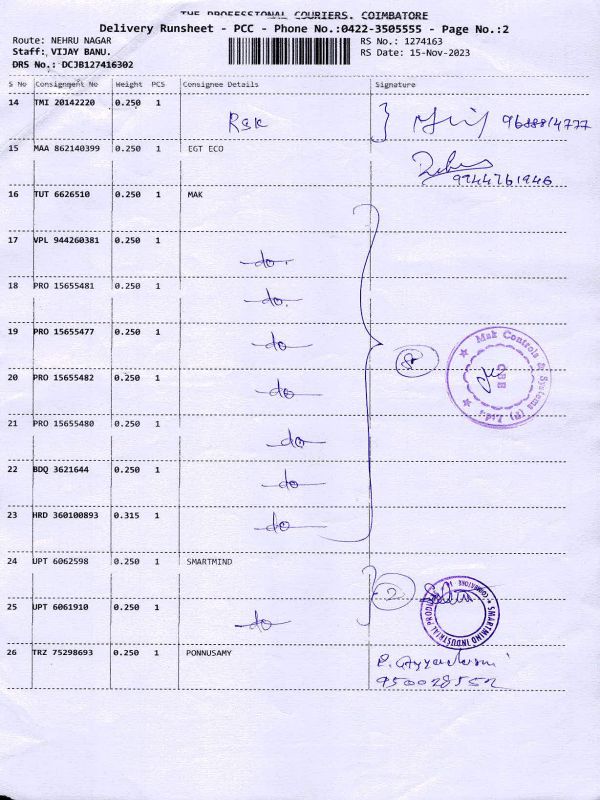 THE PROFESSIONAL COURIERS. COIMBATORE
Delivery Runsheet - PCC - Phone No.:0422-3505555 - Page No.:2
Route: NEHRU NAGAR RS No.: 1274163
Staff: VIJAY BANU. RS Date: 15-Nov-2023
DRS No.: DCJB127416302
S No Consignment No Weight PCS Consignee Details Signature
14 TMI 20142220 0.250 1
RSK
15 MAA 862140399 0.250 1 EGT ECO
9744761946
16 TUT 6626510 0.250 1 MAK
17 VPL 944260381 0.250 1
-do-
18 PRO 15655481 0.250 1
-do-
19 PRO 15655477 0.250 1
-do-
20 PRO 15655482 0.250 1
-do-
21 PRO 15655480 0.250 1
-do-
22 BDQ 3621644 0.250 1
-do-
23 HRD 360100893 0.315 1
-do-
Mak Controls & Systems (P) Ltd.
CBE
24 UPT 6062598 0.250 1 SMARTMIND
2
25 UPT 6061910 0.250 1
-do-
SMARTMIND INDUSTRIAL
COIMBATORE
26 TRZ 75298693 0.250 1 PONNUSAMY